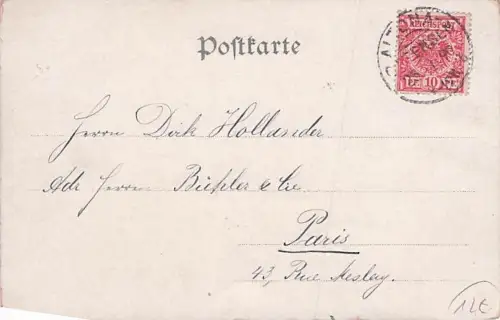 Postkarte
ALTONA
REICHSPOST
10 PF 10
Herrn Dirk Hollander
Adr Herrn Bühler & Cie
Paris
43, Rue Meslay.
12€